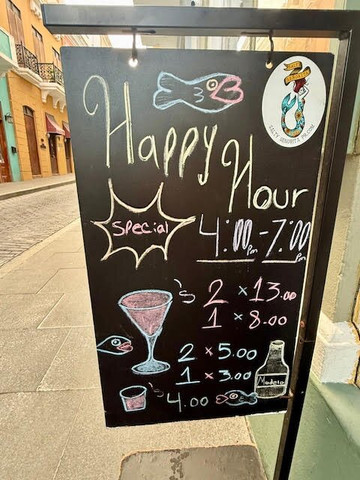 Happy
Hour
Special
4:00pm-7:00pm
's 2 x 13.00
1 x 8.00
2 x 5.00
1 x 3.00
Modelo
's 4.00